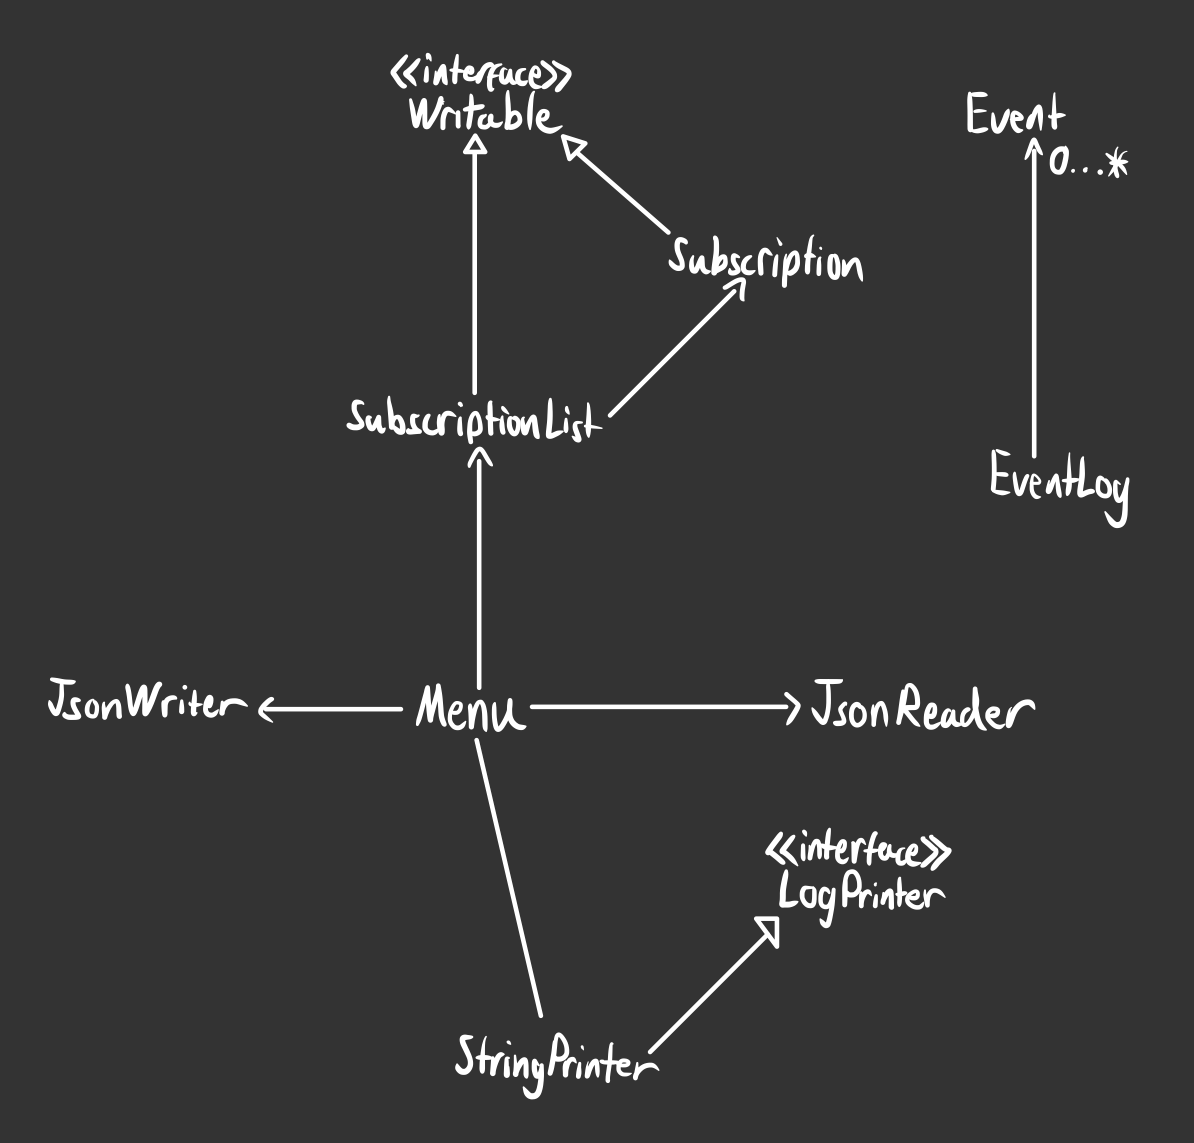 <<interface>>
Writable
Event
0...*
Subscription
SubscriptionList
EventLog
JsonWriter
Menu
JsonReader
<<interface>>
LogPrinter
StringPrinter